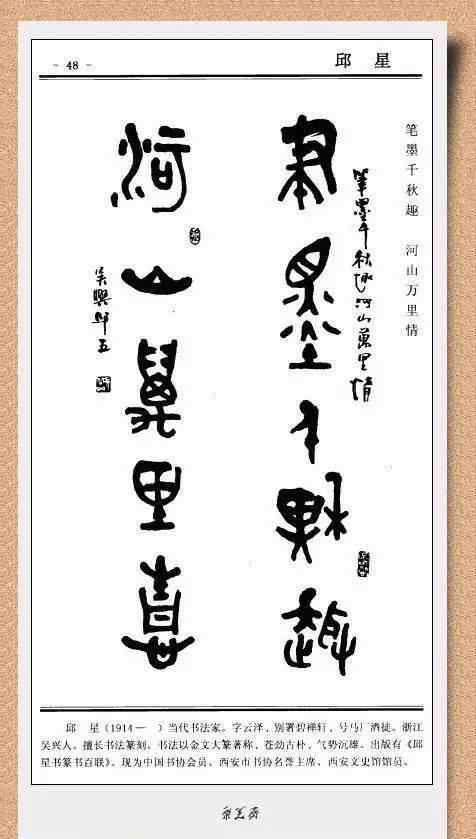 - 48 -
邱 星
笔墨千秋趣 河山万里情
筆墨千秋趣
筆墨千秋趣河山萬里情
河山萬里情
吴興邱五
邱 星(1914— )当代书法家。字云泽,别署碧禅轩,号马厂酒徒。浙江
吴兴人。擅长书法篆刻。书法以金文大篆著称,苍劲古朴,气势沉雄。出版有《邱
星书篆书百联》。现为中国书协会员、西安市书协名誉主席、西安文史馆馆员。